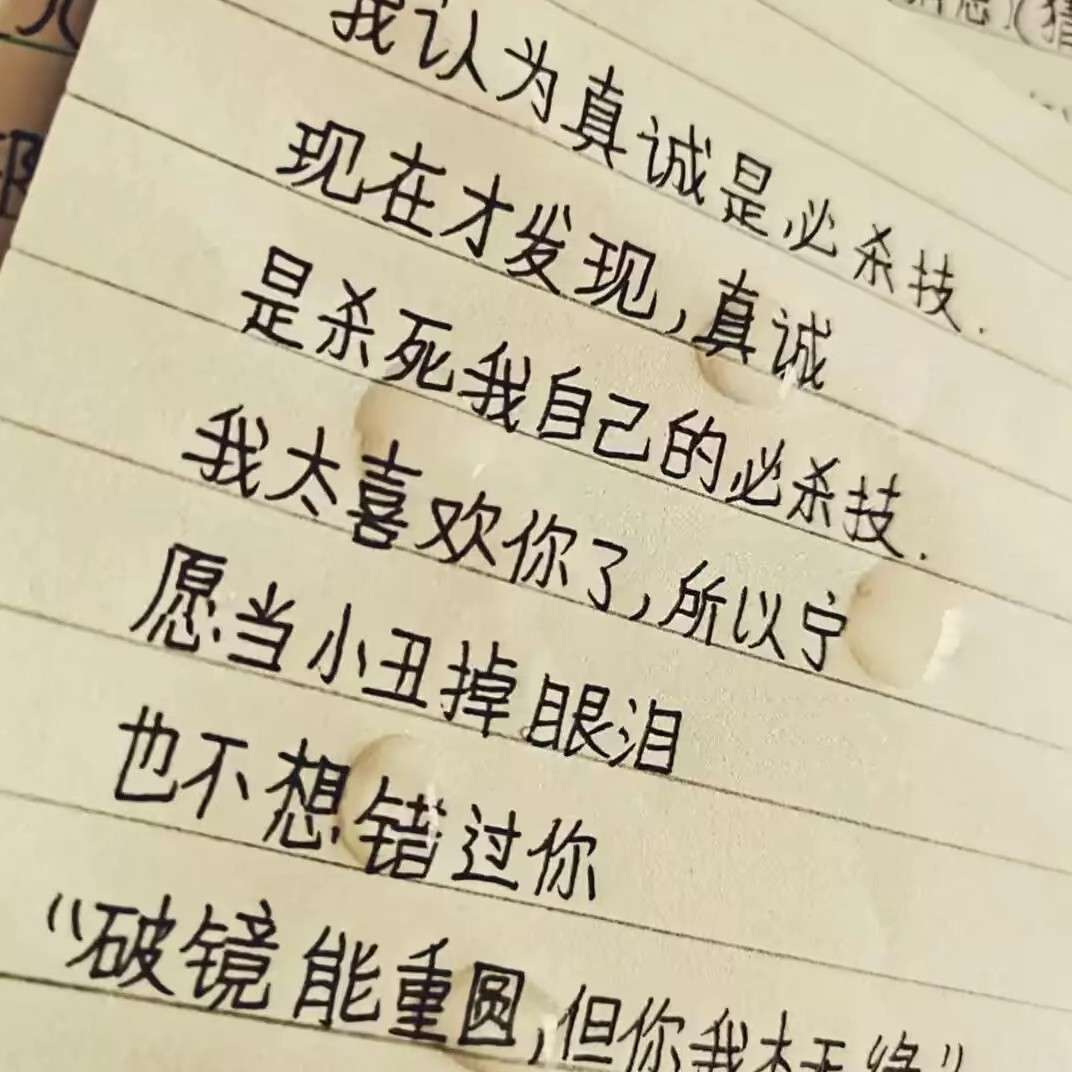 我认为真诚是必杀技.
现在才发现,真诚
是杀死我自己的必杀技.
我太喜欢你了,所以宁
愿当小丑掉眼泪
也不想错过你
“破镜能重圆,但你我本无缘”